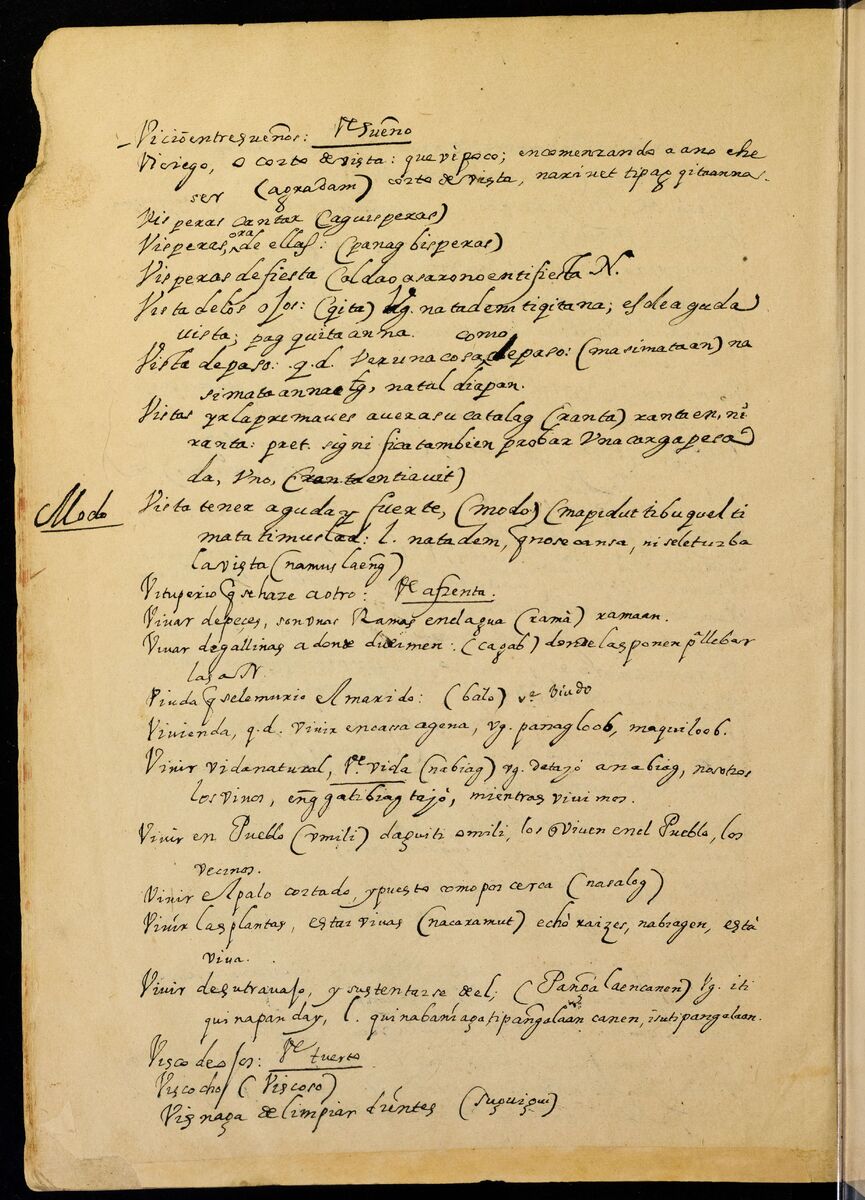 Viciõ entre sueños: Vᵉ Sueño
Viciego, o corto de vista: que vè poco; encomenzando a ano che
ser (agradam) corto de vista, narinet tipag qitaanna.
Visperas cantar (aguisperas)
Visperas, oras de ellas: (panagbisperas)
Visperas de fiesta (aldao a sarono enti fiesta N.
Vista de los ojos: (qita) Vg. natadem ti qitana; es de aguda
vista; pag quitaanna. como
Vista de paso: q.d. Ver una cosa de paso: (masimataan) na
simataanna Vg, nataldiapan.
Vistas yr la primaues a uer a su catalag (ranta) rantaen, ni
ranta: pret. significa tambien probar Vna carga pesa
da, Vno, (rantaentia uit)
Modo Vista tener aguda y fuerte, (modo) (mapidut ti buquel ti
mata ti muslad: l. natadem, q̃ no se cansa, ni se le turba
la vista (namuslaeng)
Vituperio q̃ se haze a otro: Vᵉ afrenta.
Vivar de peces, son vnas Ramas en el agua (ramà) ramaan.
Vivar de gallinas a donde duermen: (cagab) donde las ponen pᵃ llebar
las a N.
Viuda q̃ se le murio el marido: (balo) vᵉ viudo
Vivienda, q.d. vivir en cassa agena, vg. panagloob, maquiloob.
Vivir vida natural, Vᵉ vida (nabiag) vg. detajó a nabiag, nosotros
los vivos, eng̃ga ti biag tajó, mientras vivimos.
Vivir en Pueblo (vmili) daguiti omili, los q̃ viven en el Pueblo, los
vecinos.
Vivir el palo cortado, y puesto como por cerca (nasalog)
Vivir las plantas, estar vivas (nacaramut) echò raizes, nabiagen, està
viva.
Vivir de su travajo, y sustentarse de el; (Pang̃alaen canen) Vg. iti
quinapanday, l. quinabaniaga, ti pang̃alaan canen, isu ti pangalaan.
Visco de ojos: Vᵉ tuerto
Viscocho (Viscoso)
Visnaga de limpiar diéntes (suguigui)